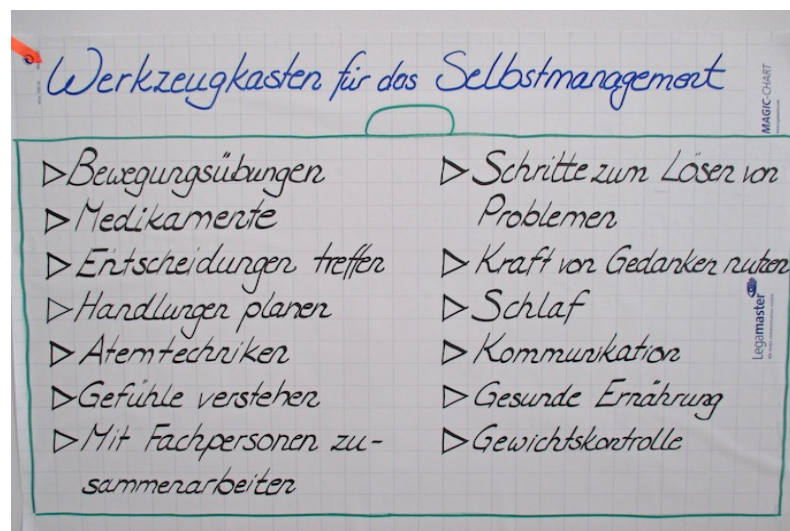 Werkzeugkasten für das Selbstmanagement
MAGIC-CHART
▷Bewegungsübungen
▷Medikamente
▷Entscheidungen treffen
▷Handlungen planen
▷Atemtechniken
▷Gefühle verstehen
▷Mit Fachpersonen zu-
sammenarbeiten
▷Schritte zum Lösen von
Problemen
▷Kraft von Gedanken nutzen
▷Schlaf
▷Kommunikation
▷Gesunde Ernährung
▷Gewichtskontrolle
Legamaster